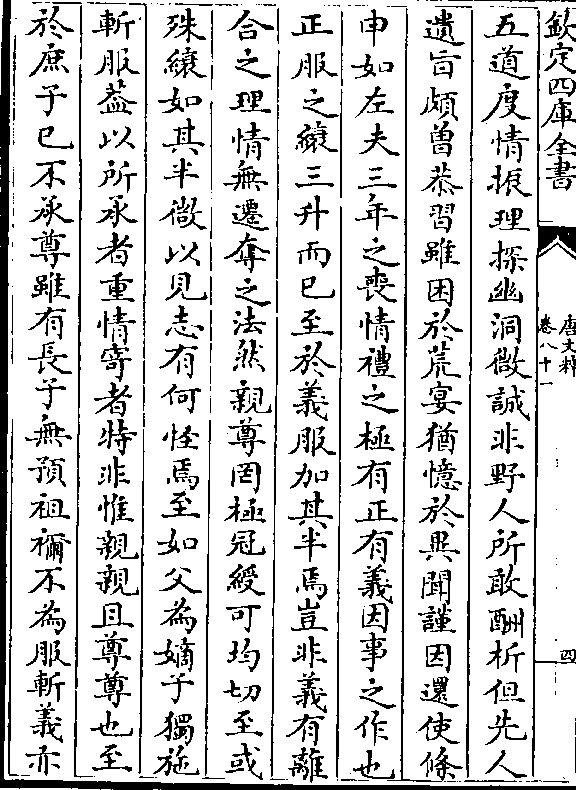 欽定四庫全書
唐文粹
卷八十一
四
五道度情振理探幽洞微誠非野人所敢酬析但先人
遺旨頗曾恭習雖困於荒宴猶憶於異聞謹因還使條
申如左夫三年之喪情禮之極有正有義因事之作也
正服之縗三升而已至於義服加其半焉豈非義有離
合之理情無遷奪之法然親尊罔極冠綬可均切至或
殊縗如其半微以見志有何怪焉至如父為嫡子獨施
斬服葢以所承者重情寄者特非惟親親且尊尊也至
於庶子已不承尊雖有長子無預祖禰不為服斬義亦